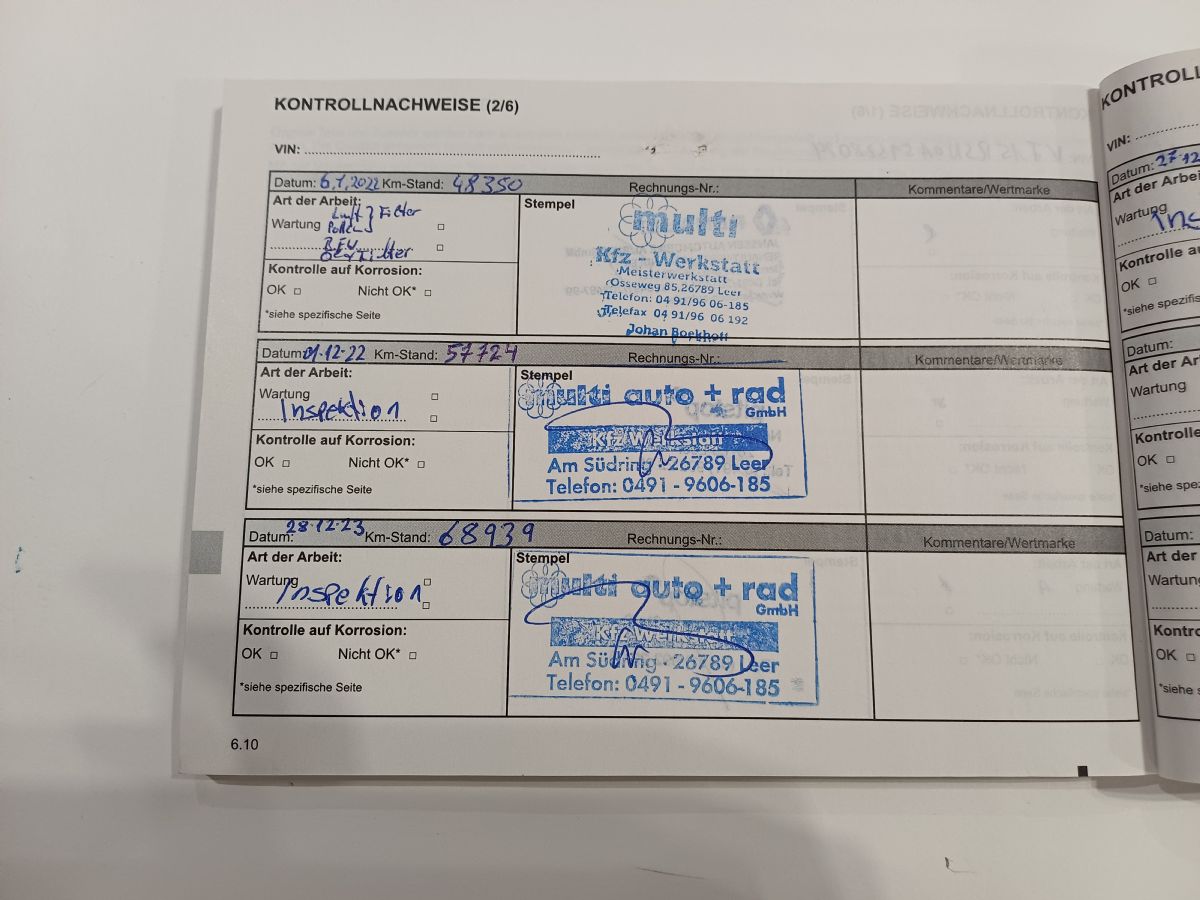 KONTROLLNACHWEISE (2/6)
VIN:
Datum: 6.1.2022 Km-Stand: 48350 Rechnungs-Nr.: Kommentare/Wertmarke
Art der Arbeit:
Luft } Filter
Wartung Pollen
Ölfilter
Kontrolle auf Korrosion:
OK Nicht OK*
*siehe spezifische Seite
Stempel
multi
Kfz - Werkstatt
Meisterwerkstatt
Osseweg 85, 26789 Leer
Telefon: 04 91/96 06-185
Telefax 04 91/96 06 192
Johan Boekhoff
Datum: 01.12.22 Km-Stand: 57724 Rechnungs-Nr.: Kommentare/Wertmarke
Art der Arbeit:
Wartung
Inspektion
Kontrolle auf Korrosion:
OK Nicht OK*
*siehe spezifische Seite
Stempel
multi auto + rad
GmbH
Kfz Werkstatt
Am Südring · 26789 Leer
Telefon: 0491 - 9606-185
Datum: 28.12.23 Km-Stand: 68939 Rechnungs-Nr.: Kommentare/Wertmarke
Art der Arbeit:
Wartung
Inspektion
Kontrolle auf Korrosion:
OK Nicht OK*
*siehe spezifische Seite
Stempel
multi auto + rad
GmbH
Kfz Werkstatt
Am Südring · 26789 Leer
Telefon: 0491 - 9606-185
6.10
VIN:
Datum: 27.12
Wartung
OK
Datum:
Wartung
OK
Datum:
Art der
OK